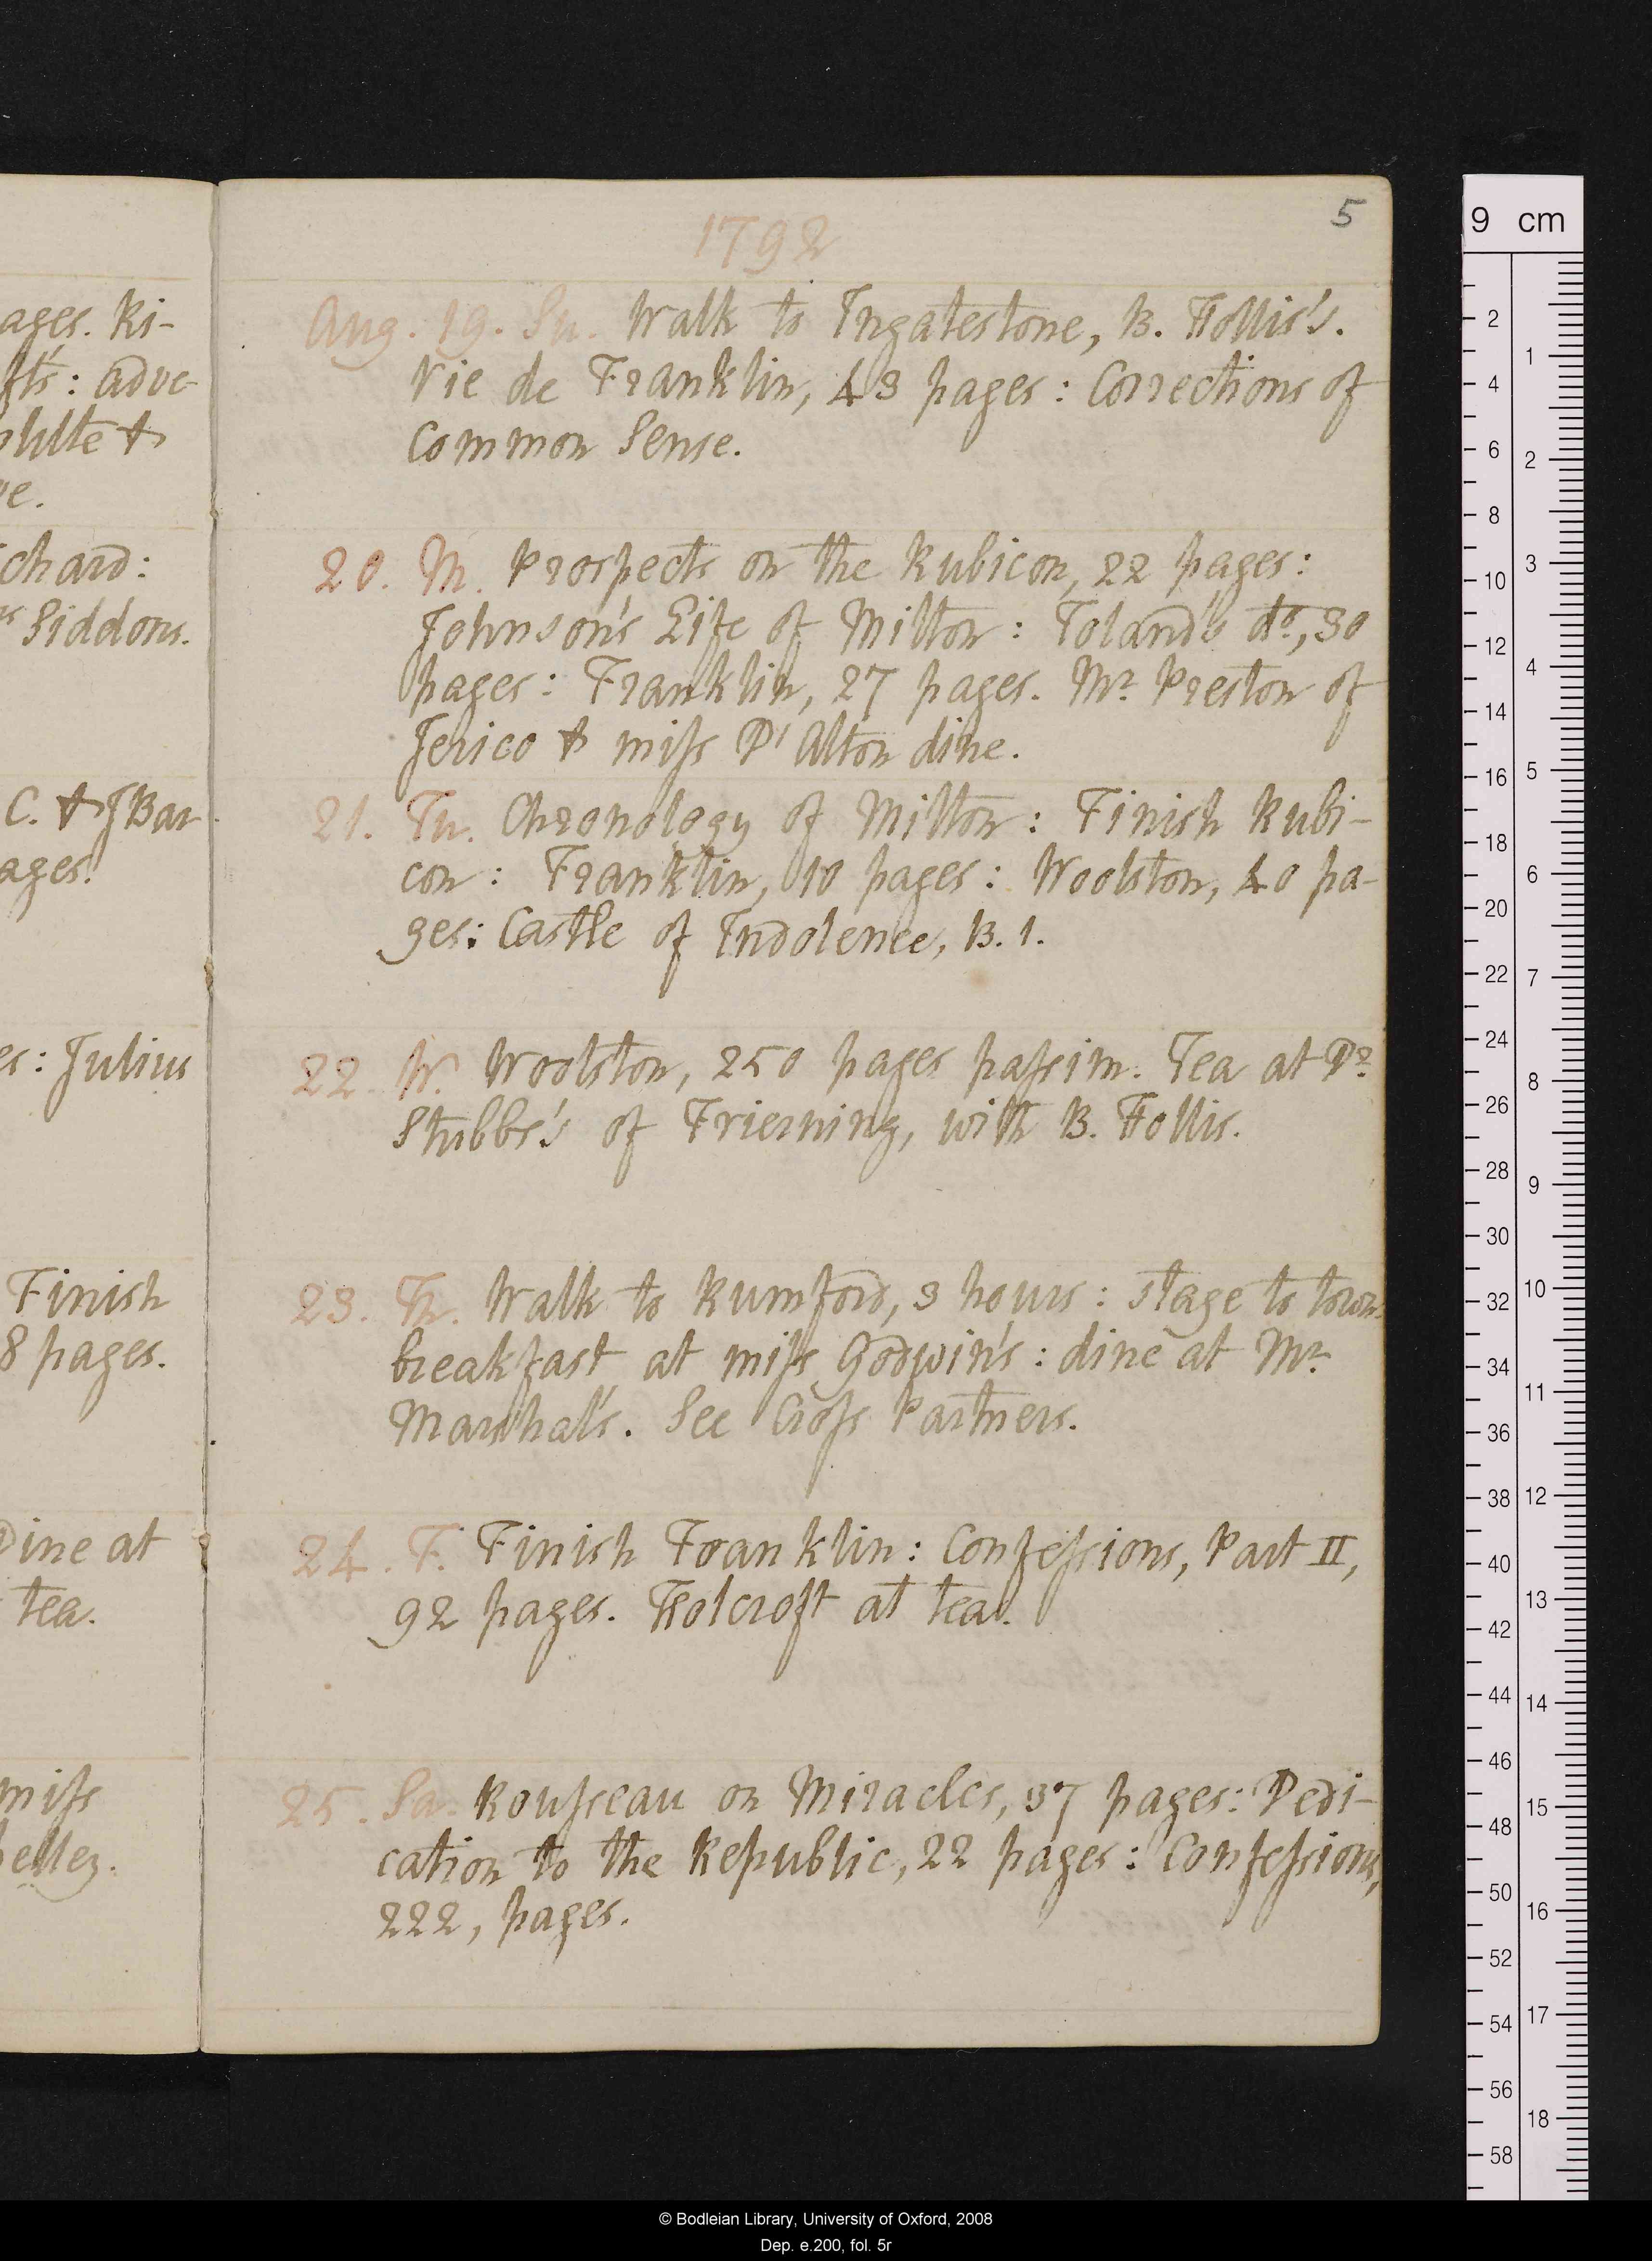 5
1792
ages. Ki-
fts: adve-
e.
chard:
rs Siddons.
C. & J Bar
ages.
es: Julius
Finish
8 pages.
Dine at
tea.
miſs
elley.
Aug. 19. Su. Walk to Ingatestone, B. Hollis's.
Vie de Franklin, 43 pages: Corrections of
Common Sense.
20. M. Prospects on the Rubicon, 22 pages:
Johnson's Life of Milton: Toland's do, 30
pages: Franklin, 27 pages. Mr Preston of
Jerico & miſs D'Alton dine.
21. Tu. Chronology of Milton: Finish Rubi-
con: Franklin, 10 pages: Woolston, 40 pa-
ges: Castle of Indolence, B. 1.
22. W. Woolston, 250 pages paſsim. Tea at Dr
Stubbs's of Frierning, with B. Hollis.
23. Th. Walk to Rumford, 3 hours: stage to town:
breakfast at miſs Godwin's: dine at Mr
Marshal's. See Croſs Partners.
24. F. Finish Franklin: Confeſsions, Part II,
92 pages. Holcroft at tea.
25. Sa. Rouſseau on Miracles, 37 pages: Dedi-
cation to the Republic, 22 pages: Confeſsions,
222, pages.
9 cm
2
4
6
8
10
12
14
16
18
20
22
24
26
28
30
32
34
36
38
40
42
44
46
48
50
52
54
56
58
1
2
3
4
5
6
7
8
9
10
11
12
13
14
15
16
17
18
© Bodleian Library, University of Oxford, 2008
Dep. e.200, fol. 5r